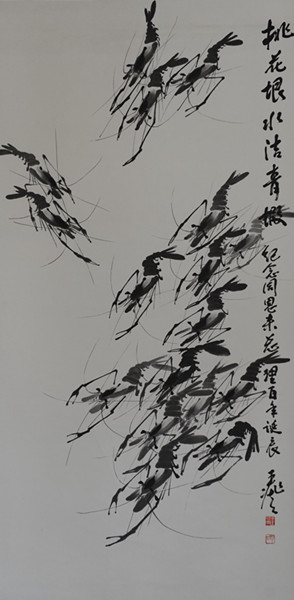 桃花垠水洁青微
纪念周恩来总理百年诞辰